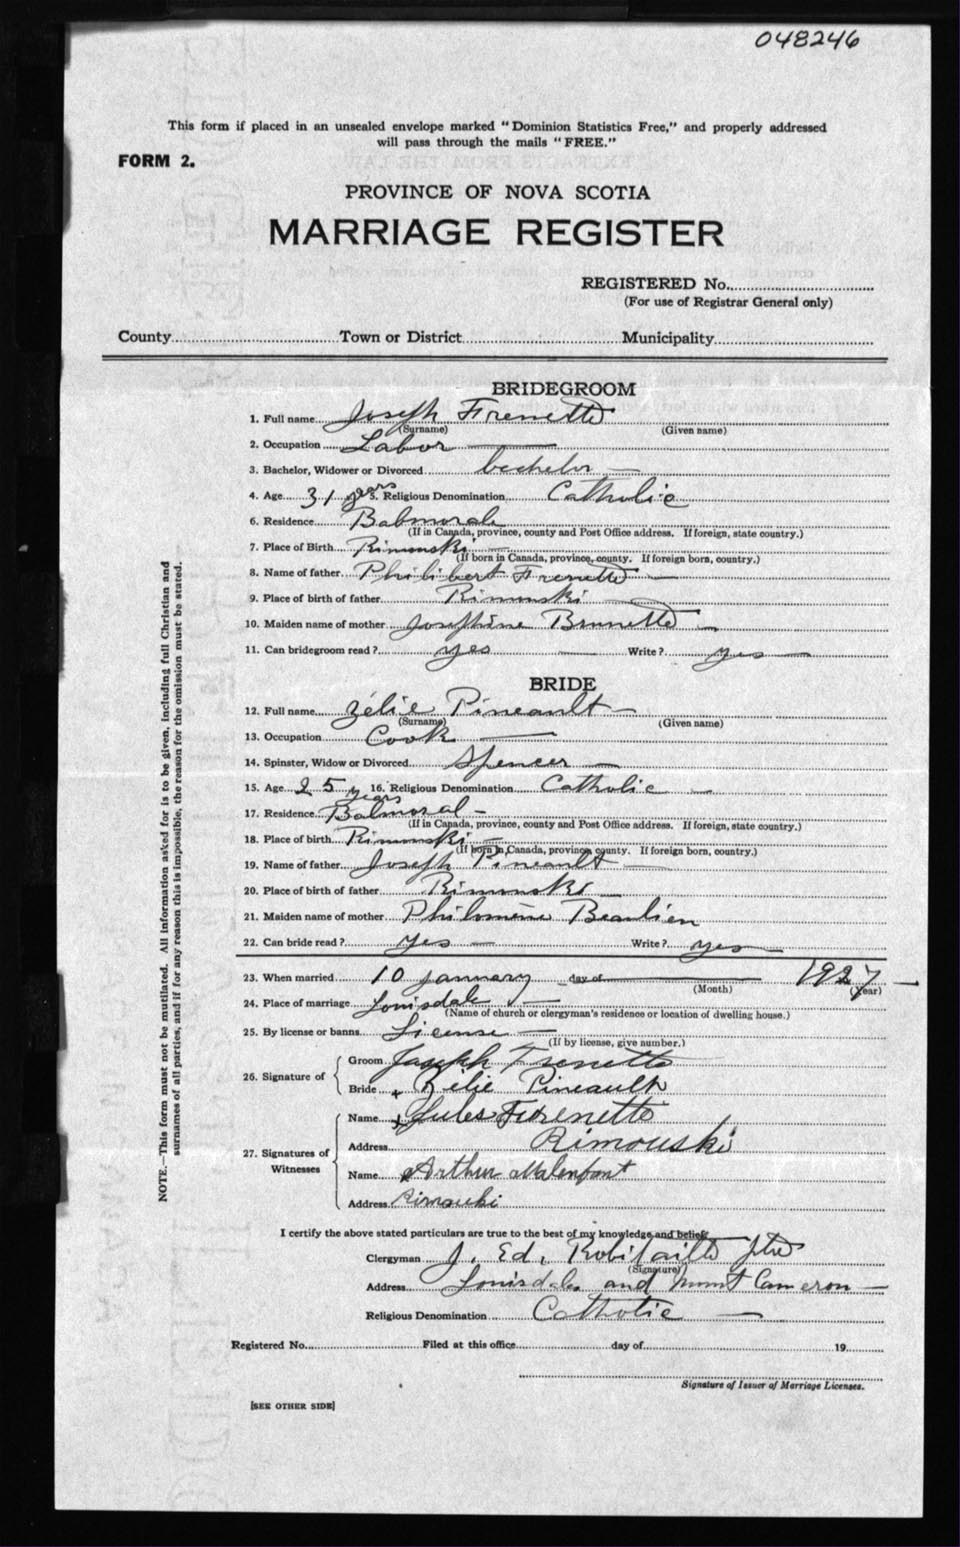 048246
This form if placed in an unsealed envelope marked "Dominion Statistics Free," and properly addressed
will pass through the mails "FREE."
FORM 2.
PROVINCE OF NOVA SCOTIA
MARRIAGE REGISTER
REGISTERED No.
(For use of Registrar General only)
County Town or District Municipality
BRIDEGROOM
1. Full name Joseph Frenette
(Surname) (Given name)
2. Occupation Labor
3. Bachelor, Widower or Divorced bachelor
4. Age 31 years 5. Religious Denomination Catholic
6. Residence Babmorale
(If in Canada, province, county and Post Office address. If foreign, state country.)
7. Place of Birth Rimouski
(If born in Canada, province, county. If foreign born, country.)
8. Name of father Philibert Frenette
9. Place of birth of father Rimouski
10. Maiden name of mother Josephine Brunette
11. Can bridegroom read? yes Write? yes
BRIDE
12. Full name Zélie Pineault
(Surname) (Given name)
13. Occupation Cook
14. Spinster, Widow or Divorced Spencer
15. Age 25 years 16. Religious Denomination Catholic
17. Residence Balmoral
(If in Canada, province, county and Post Office address. If foreign, state country.)
18. Place of birth Rimouski
(If born in Canada, province, county. If foreign born, country.)
19. Name of father Joseph Pineault
20. Place of birth of father Rimouski
21. Maiden name of mother Philomène Beaulieu
22. Can bride read? yes Write? yes
23. When married 10 January day of 1927
(Month) (Year)
24. Place of marriage Louisdale
(Name of church or clergyman's residence or location of dwelling house.)
25. By license or banns License
(If by license, give number.)
26. Signature of
Groom Joseph Frenette
Bride + Zélie Pineault
27. Signatures of Witnesses
Name + Jules Frenette
Address Rimouski
Name Arthur Malenfant
Address Rimouski
I certify the above stated particulars are true to the best of my knowledge and belief.
Clergyman J. Ed. Robitaille ptre
(Signature)
Address Louisdale and Mount Cameron
Religious Denomination Catholic
Registered No. Filed at this office day of 19
Signature of Issuer of Marriage Licenses.
[SEE OTHER SIDE]
NOTE.—This form must not be mutilated. All information asked for is to be given, including full Christian and
surnames of all parties, and if for any reason this is impossible, the reason for the omission must be stated.